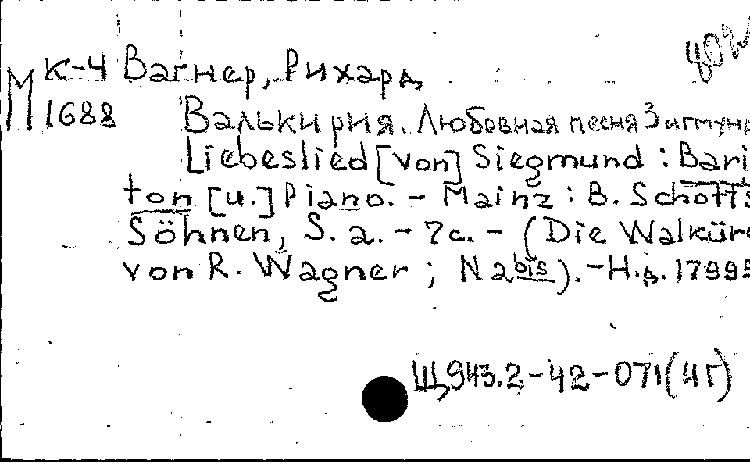 802
М К-4 Вагнер, Рихард
1688 Валькирия. Любовная песня Зигмун
Liebeslied [von] Siegmund : Bari
ton [u.] Piano. - Mainz : B. Schott's
Söhnen, S. a. - 7c. - (Die Walküre
von R. Wagner ; N 2 bis). - Н.д. 17995
Щ943.2-42-071(4Г)